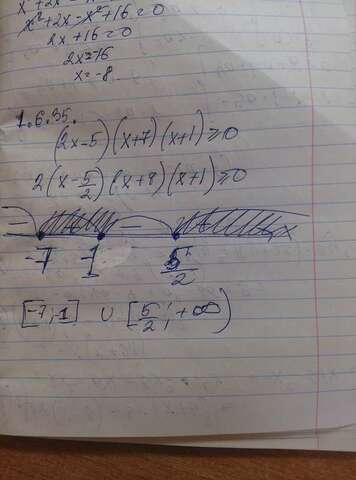 x²+2x-x²+16=0
2x+16=0
2x=-16
x=-8
1.6.35.
(2x-5)(x+7)(x+1)≥0
2(x-5/2)(x+7)(x+1)≥0
-7 -1 5/2 x
[-7;-1] ∪ [5/2;+∞)